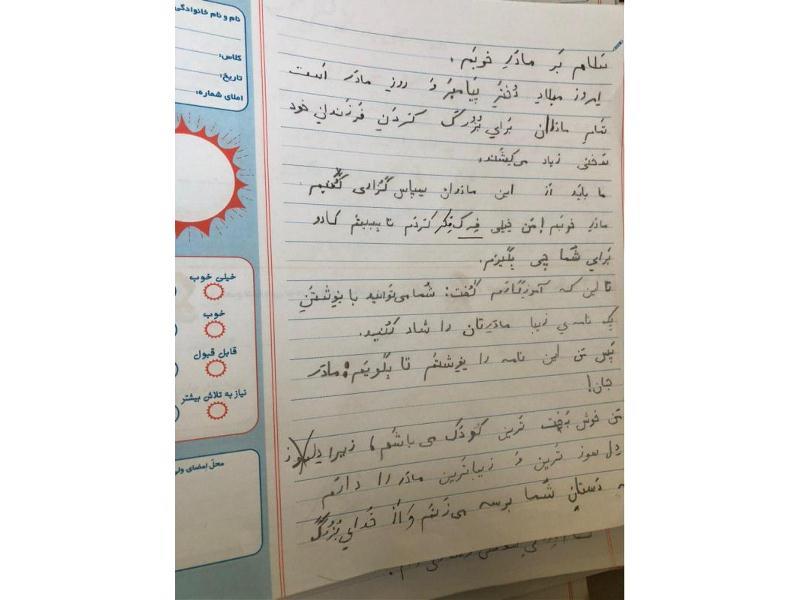 نام و نام خانوادگی
کلاس:
تاریخ:
املای شماره:
خیلی خوب
خوب
قابل قبول
نیاز به تلاش بیشتر
محل امضای ولی
سلام بَر مادَرِ خوبَم.
اِمروز میلادِ دُختَرِ پِیامبَر وَ روزِ مادَر اَست
تَمامِ مادَران بَرایِ بُزُرگ کَردَنِ فَرزَندانِ خود
سَختی زیاد می‌کِشَند.
ما باید اَز این مادَران سِپاس گُزاری کُنیم
مادَرِ خوبَم! مَن خِیلی فِکر کَردَم تا بِبینَم کادو
بَرایِ شُما چی بِگیرَم.
تا این که آموزگارَم گُفت: شُما می‌تَوانید با نِوِشتَنِ
یِک نامه‌ی زیبا مادَرِتان را شاد کُنید.
پَس مَن این نامه را نِوِشتَم تا بِگویَم: مادَر
جان!
مَن خوش بَخت تَرین کودَک می باشَم، زیرا
دِل سوز تَرین وَ زیباتَرین مادَر را دارَم
دَستانِ شُما بوسه می‌زَنَم وَ اَز خُدایِ بُزُرگ